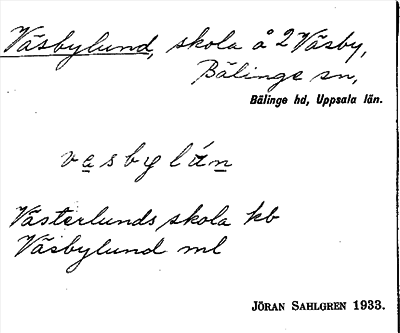 Väsbylund, skola å 2 Väsby,
Bälinge sn,
Bälinge hd, Uppsala län.
vasbylán
Västerlunds skola kb
Väsbylund ml
JÖRAN SAHLGREN 1933.